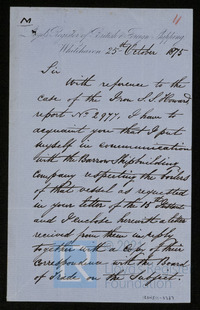 M
4
Lloyd's Register of British & Foreign Shipping
Whitehaven 25th October 1875
Sir
With reference to the
case of the Iron S.S. Howard
report No. 2977. I have to
acquaint you that I put
myself in communication
with the Barrow Shipbuilding
Company respecting the boilers
of that vessel as requested
in your letter of the 15th
and I enclose herewith a letter
received from them in reply
together with a copy of their
correspondence with the Board
of Trade on the subject